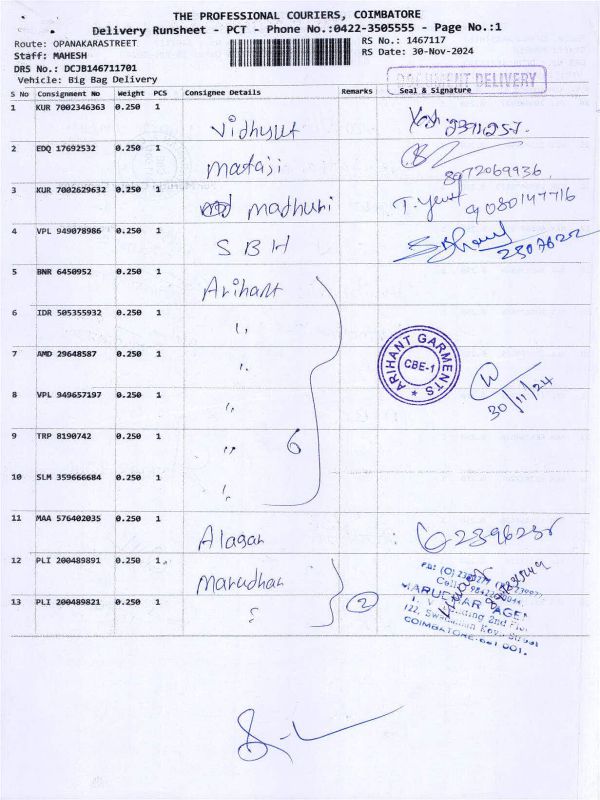 THE PROFESSIONAL COURIERS, COIMBATORE
Delivery Runsheet - PCT - Phone No.:0422-3505555 - Page No.:1
Route: OPANAKARASTREET
RS No.: 1467117
Staff: MAHESH
RS Date: 30-Nov-2024
DRS No.: DCJB146711701
Vehicle: Big Bag Delivery
DOCUMENT DELIVERY
S No Consignment No Weight PCS Consignee Details Remarks Seal & Signature
1 KUR 7002346363 0.250 1
Vidhyut
2 EDQ 17692532 0.250 1
Mataji
8972069936
3 KUR 7002629632 0.250 1
madhuri
9080147716
4 VPL 949078986 0.250 1
SBH
2307622
5 BNR 6450952 0.250 1
Arihant
6 IDR 505355932 0.250 1
"
7 AMD 29648587 0.250 1
"
ARIHANT GARMENTS
CBE-1
8 VPL 949657197 0.250 1
"
30/11/24
9 TRP 8190742 0.250 1
" 6
10 SLM 359666684 0.250 1
"
11 MAA 576402035 0.250 1
Alagar
2396235
12 PLI 200489891 0.250 1
Marudhar
13 PLI 200489821 0.250 1
2
COIMBATORE-641 001.